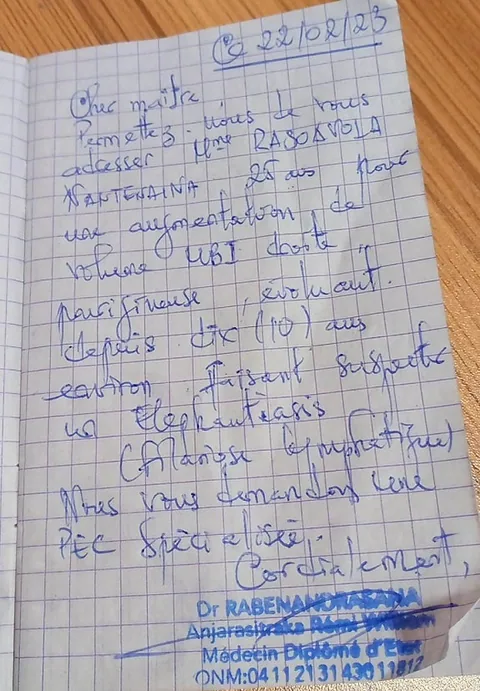 Ce 22/02/23
Cher maître
Permettez-nous de vous
adresser Mme RASOAVOLA
NANTENAINA 25 ans pour
une augmentation de
volume MBI droite
prurigineuse, évoluant
depuis dix (10) ans
environ faisant suspecter
un Elephantiasis
(Filariose lymphatique)
Nous vous demandons une
PEC Spécialisée.
Cordialement,
Dr RABENANDRASANA
Anjarasitraka Rémi
Médecin Diplômé d'Etat
ONM: